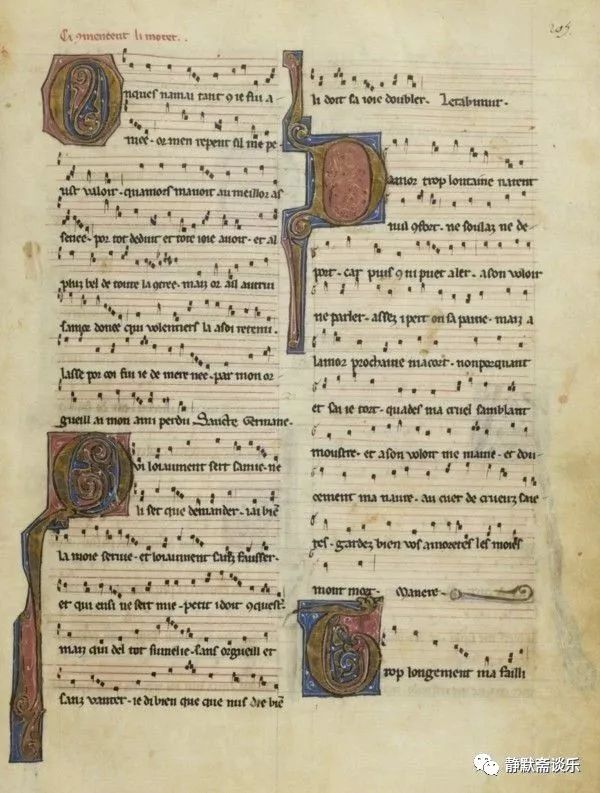 Ci 9mencent li motet.
205.
Onques namai tant 9 ie fui a
mee- or men repent sil me pe
ust valoir- quamors mavoit au meillor as
senee- por tot deduit et tote ioie avoir- et al
plus bel de toute la 9tree- mais or ail autrui
samor donee qui volentiers la a soi retenu-
lasse por coi fui ie de mere nee- par mon or
gueill ai mon ami perdu Sancte Germane-
Qui loiaument sert samie- ne
li set que demander- iai biē
la moie servie- et loiaument sans fausser-
et qui ensi ne sert mie- petit i doit 9quest
mais qui del tot sumelie- sans orgueill et
sans vanter- ie di bien que que nus die biē
li doit sa ioie doubler- Letabitur-
Damor trop lontaine natent
nus 9fort- ne soulas ne de
port- car puis 9 ni puet aler- a son voloir
ne parler- assez i pert on sa paine- mais a
lamor prochaine macort- nonporquant
et sai ie tort- quades ma cruel samblant
moustre- et a son voloir me maine- et dou-
cement ma navre- au cuer de crueus saie
tes- gardez bien vos amoretes les moies
mont mort- Manere-
Trop longement ma failli
静默斋谈乐